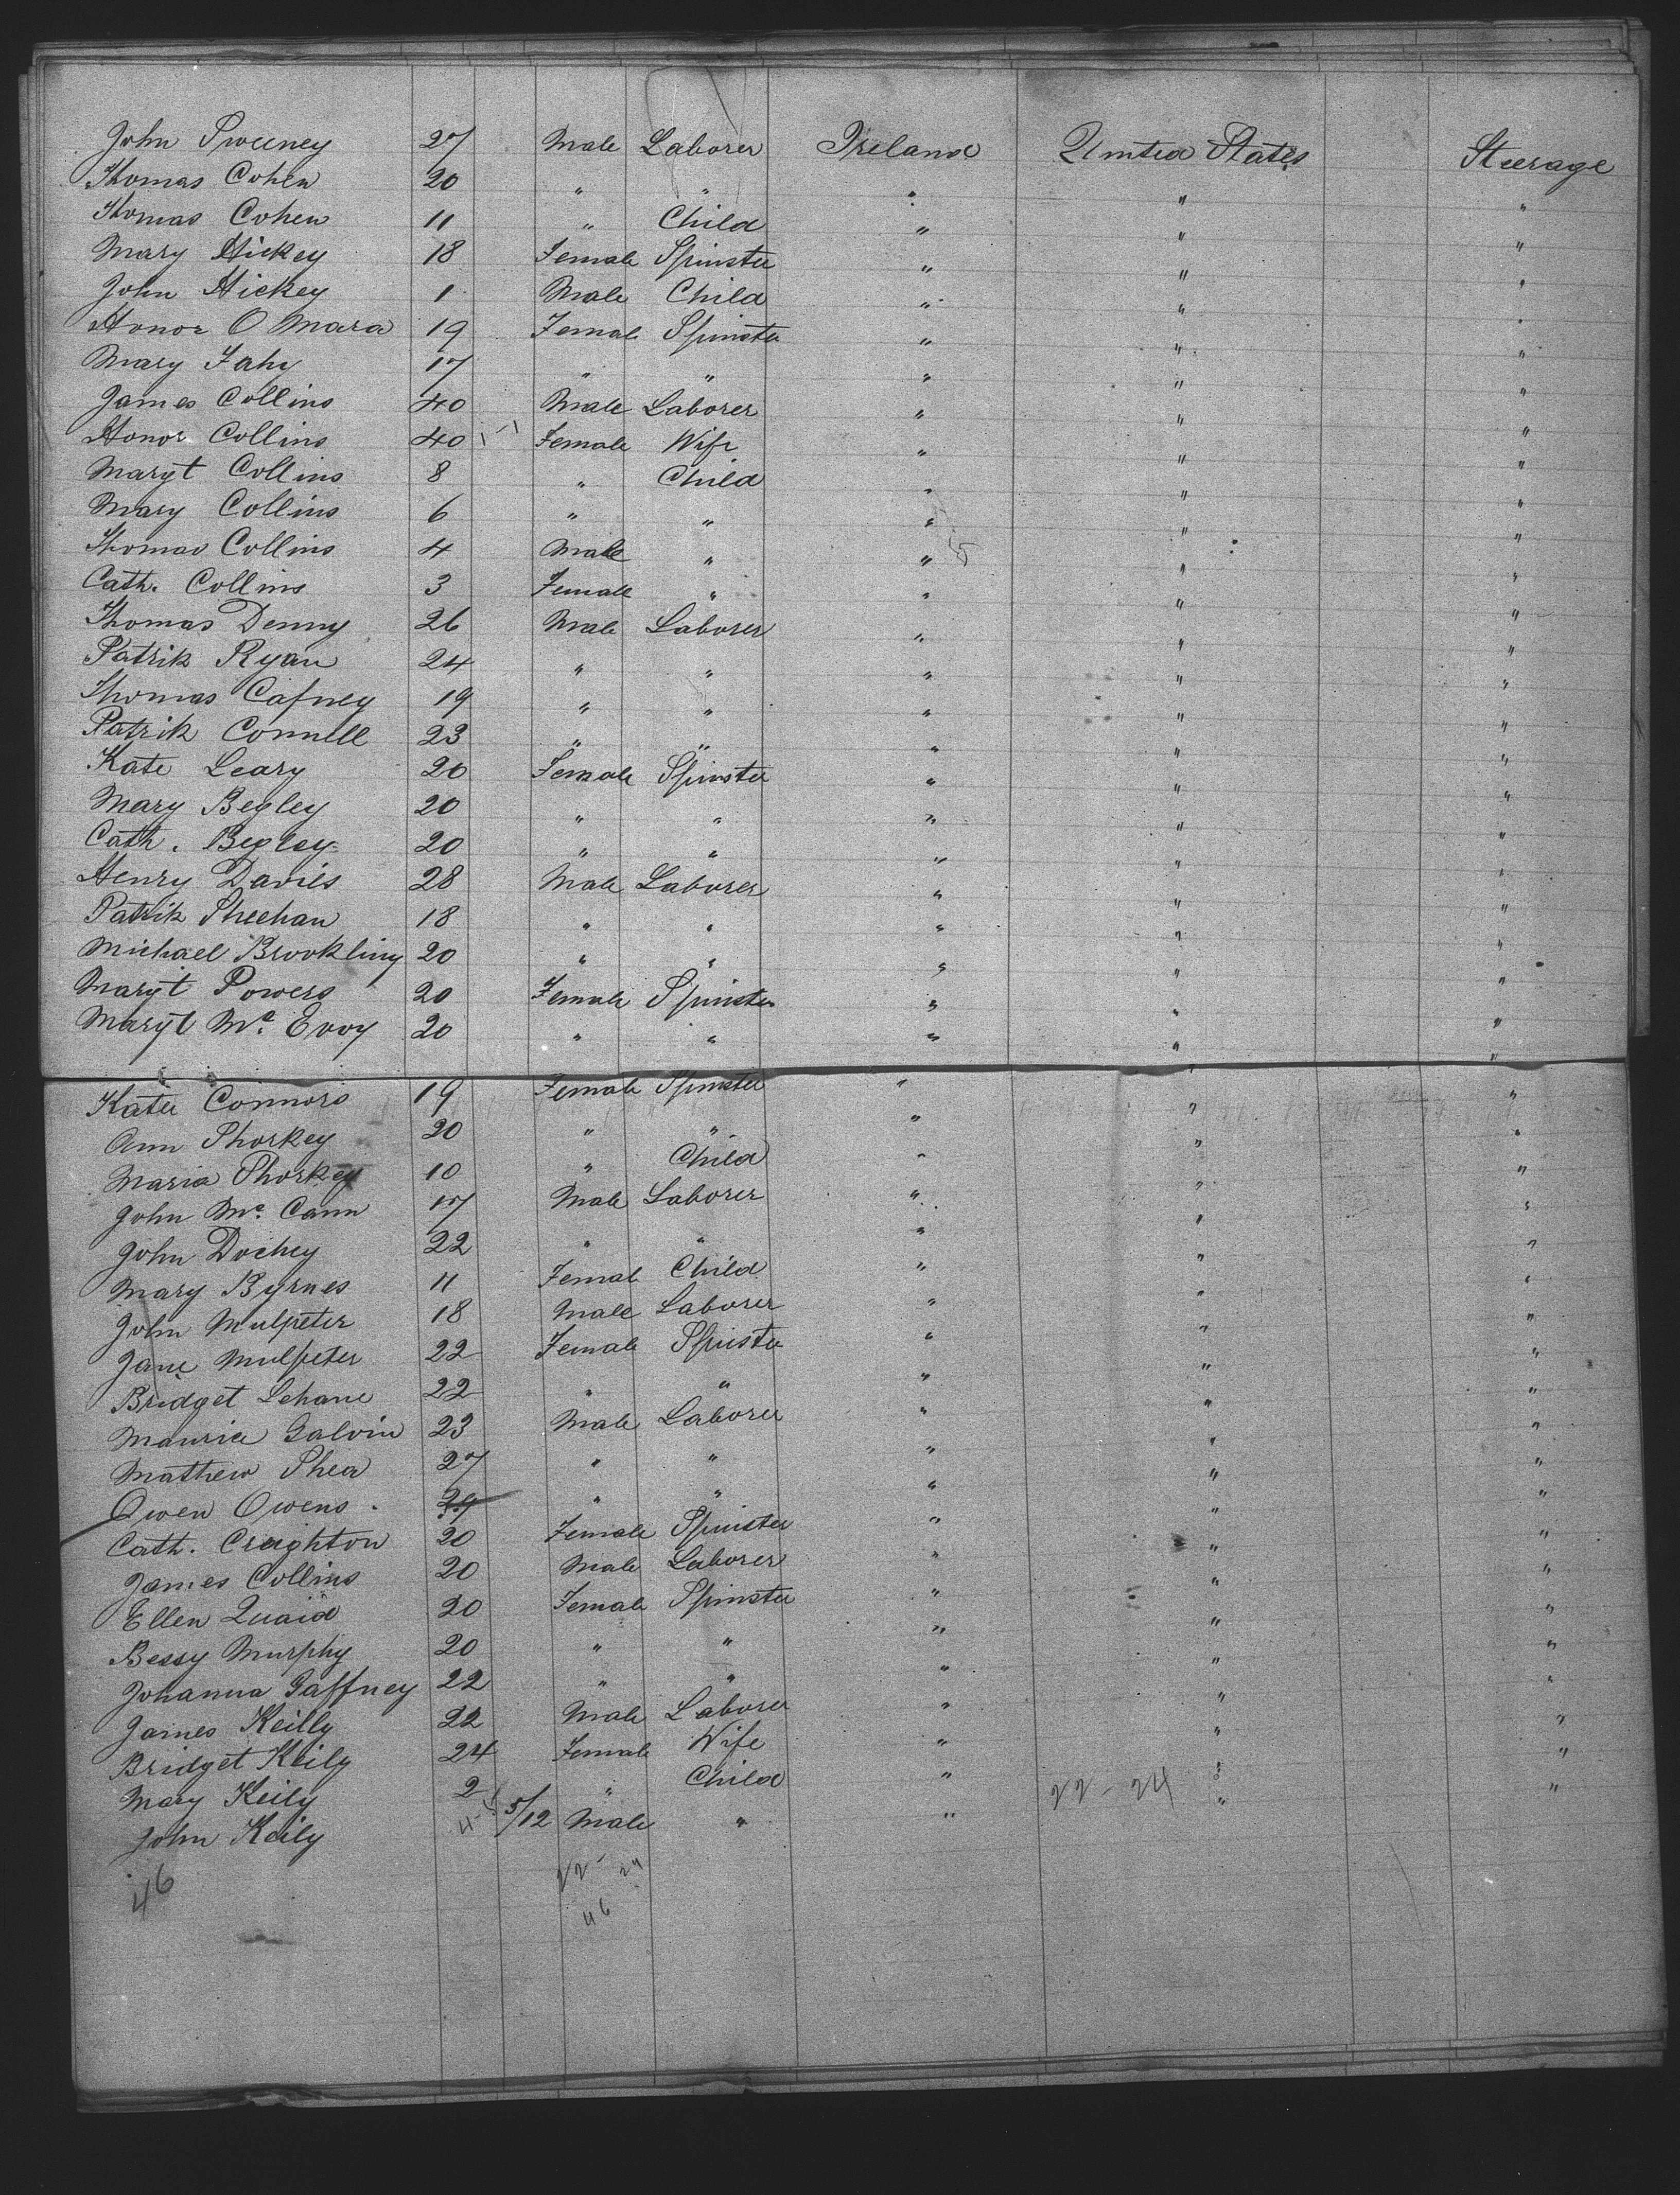 John Sweeney 27 Male Laborer Ireland United States Steerage
Thomas Cohen 20 " " " " "
Thomas Cohen 11 " Child " " "
Mary Hickey 18 Female Spinster " " "
John Hickey 1 Male Child " " "
Honor O Mara 19 Female Spinster " " "
Mary Fahy 17 " " " " "
James Collins 40 Male Laborer " " "
Honor Collins 40 Female Wife " " "
Margt Collins 8 " Child " " "
Mary Collins 6 " " " " "
Thomas Collins 4 Male " " " "
Cath. Collins 3 Female " " " "
Thomas Denny 26 Male Laborer " " "
Patrik Ryan 24 " " " " "
Thomas Cafney 19 " " " " "
Patrik Connell 23 " " " " "
Kate Leary 20 Female Spinster " " "
Mary Begley 20 " " " " "
Cath. Begley 20 " " " " "
Henry Davies 28 Male Laborer " " "
Patrik Sheehan 18 " " " " "
Michael Brookling 20 " " " " "
Margt Powers 20 Female Spinster " " "
Margt Mc. Evoy 20 " " " " "
Kate Connors 19 Female Spinster " " "
Ann Shorkey 20 " " " " "
Maria Shorkey 10 " Child " " "
John Mc. Cann 17 Male Laborer " " "
John Dochey 22 " " " " "
Mary Byrnes 11 Female Child " " "
John Mulpeter 18 Male Laborer " " "
Jane Mulpeter 22 Female Spinster " " "
Bridget Lehane 22 " " " " "
Maurice Galvin 23 Male Laborer " " "
Mathew Shea 27 " " " " "
Owen Owens " " " " "
Cath. Creighton 20 Female Spinster " " "
James Collins 20 Male Laborer " " "
Ellen Quaid 20 Female Spinster " " "
Bessy Murphy 20 " " " " "
Johanna Gaffney 22 " " " " "
James Keilly 22 Male Laborer " " "
Bridget Keily 24 Female Wife " " "
Mary Keily 2 " Child " " "
John Keily 5/12 Male " " 22-24 "
46 22- 24
46